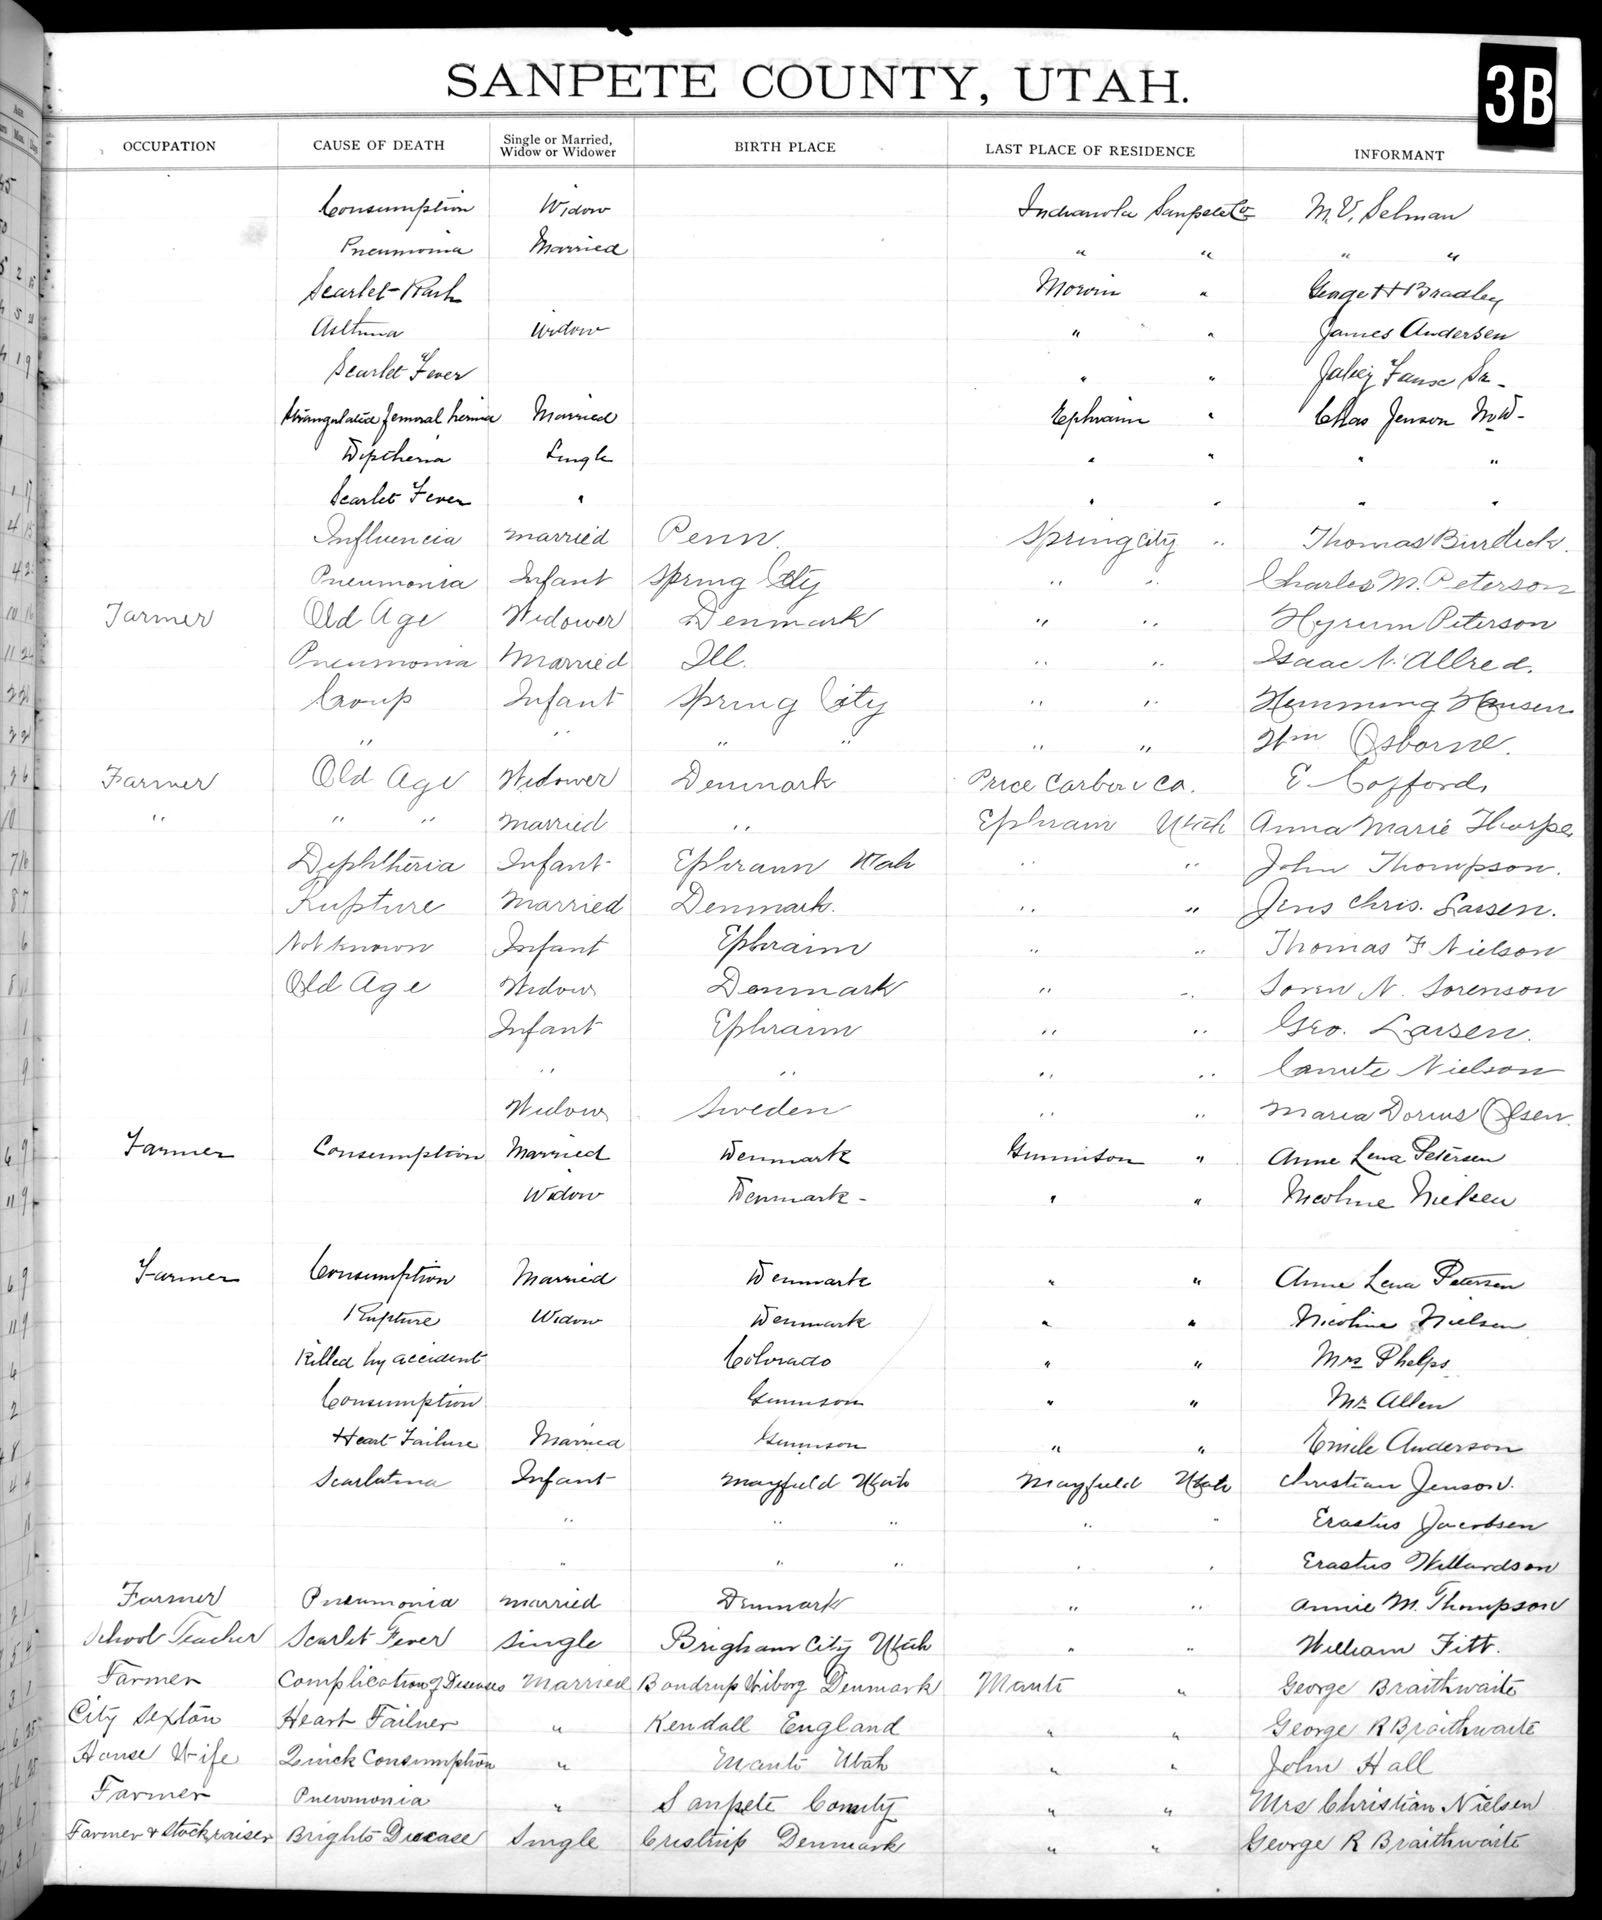 SANPETE COUNTY, UTAH.
3B
OCCUPATION CAUSE OF DEATH Single or Married, Widow or Widower BIRTH PLACE LAST PLACE OF RESIDENCE INFORMANT
Consumption Widow Indianola Sanpete Co M. V. Selman
Pneumonia Married " " " "
Scarlet-Rash " George H Bradley
Asthma widow " " James Andersen
Scarlet Fever " " Sr-
Strangulated femoral hernia Married Ephraim " Chas Jenson
Diptheria Single " " " "
Scarlet Fever " " " " "
Influencia married Penn. Spring City " Thomas Burdick.
Pneumonia Infant Spring City " " Charles M. Peterson
Farmer Old Age Widower Denmark " " Hyrum Peterson
Pneumonia Married Ill. " " Isaac N. Allred.
Croup Infant Spring City " " Hemming Hansen
" " " " " " Wm Osborne.
Farmer Old Age Widower Denmark Price Carbon Co. E Cofford
" " " married " Ephraim Utah Anna Marie Thorpe
Diphtheria Infant Ephraim Utah " " John Thompson.
Rupture Married Denmark. " " Jens Chris. Larsen.
Not known Infant Ephraim " " Thomas F Nielson
Old Age Widow Denmark " " Soren N. Sorenson
Infant Ephraim " " Geo. Larsen.
" " " " Canute Nielson
Widow Sweden " " Maria Dorius Olsen.
Farmer Consumption Married Denmark Gunnison " Anne Lena Petersen
Widow Denmark- " " Nicoline Nielsen
Farmer Consumption Married Denmark " " Anne Lena Petersen
Rupture Widow Denmark " " Nicoline Nielsen
Killed by accident Colorado " " Mrs Phelps
Consumption Gunnison " " Mr Allen
Heart Failure Married Gunnison " " Emile Anderson
Scarlatina Infant Mayfield Utah Mayfield Utah Christian Jenson.
" " " " " Erastus Jacobsen
" " " " " Erastus Willardson
Farmer Pneumonia married Denmark " " Annie M. Thompson
School Teacher Scarlet Fever Single Brigham City Utah " " William Fitt.
Farmer Complication of Diseases Married Bondrup Wiborg Denmark Manti " George Braithwaite
City Sexton Heart Failuer " Kendall England " " George R Braithwaite
House Wife Quick Consumption " Manti Utah " " John Hall
Farmer Pneumonia " Sanpete County " " Mrs Christian Nielsen
Farmer & Stockraiser Brights Disease Single Denmark " " George R Braithwaite